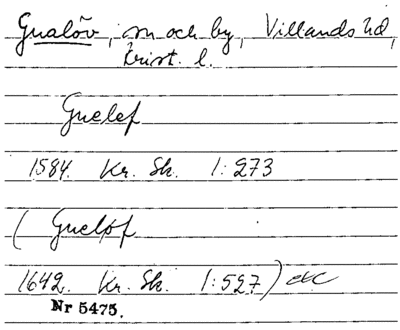 Gualöv, sn och by, Villands hd,
Krist. l.
Guelef
1584. Kr. Sk. 1:273
( Guelöf
1642. Kr. Sk. 1:527) etc
Nr 5475.